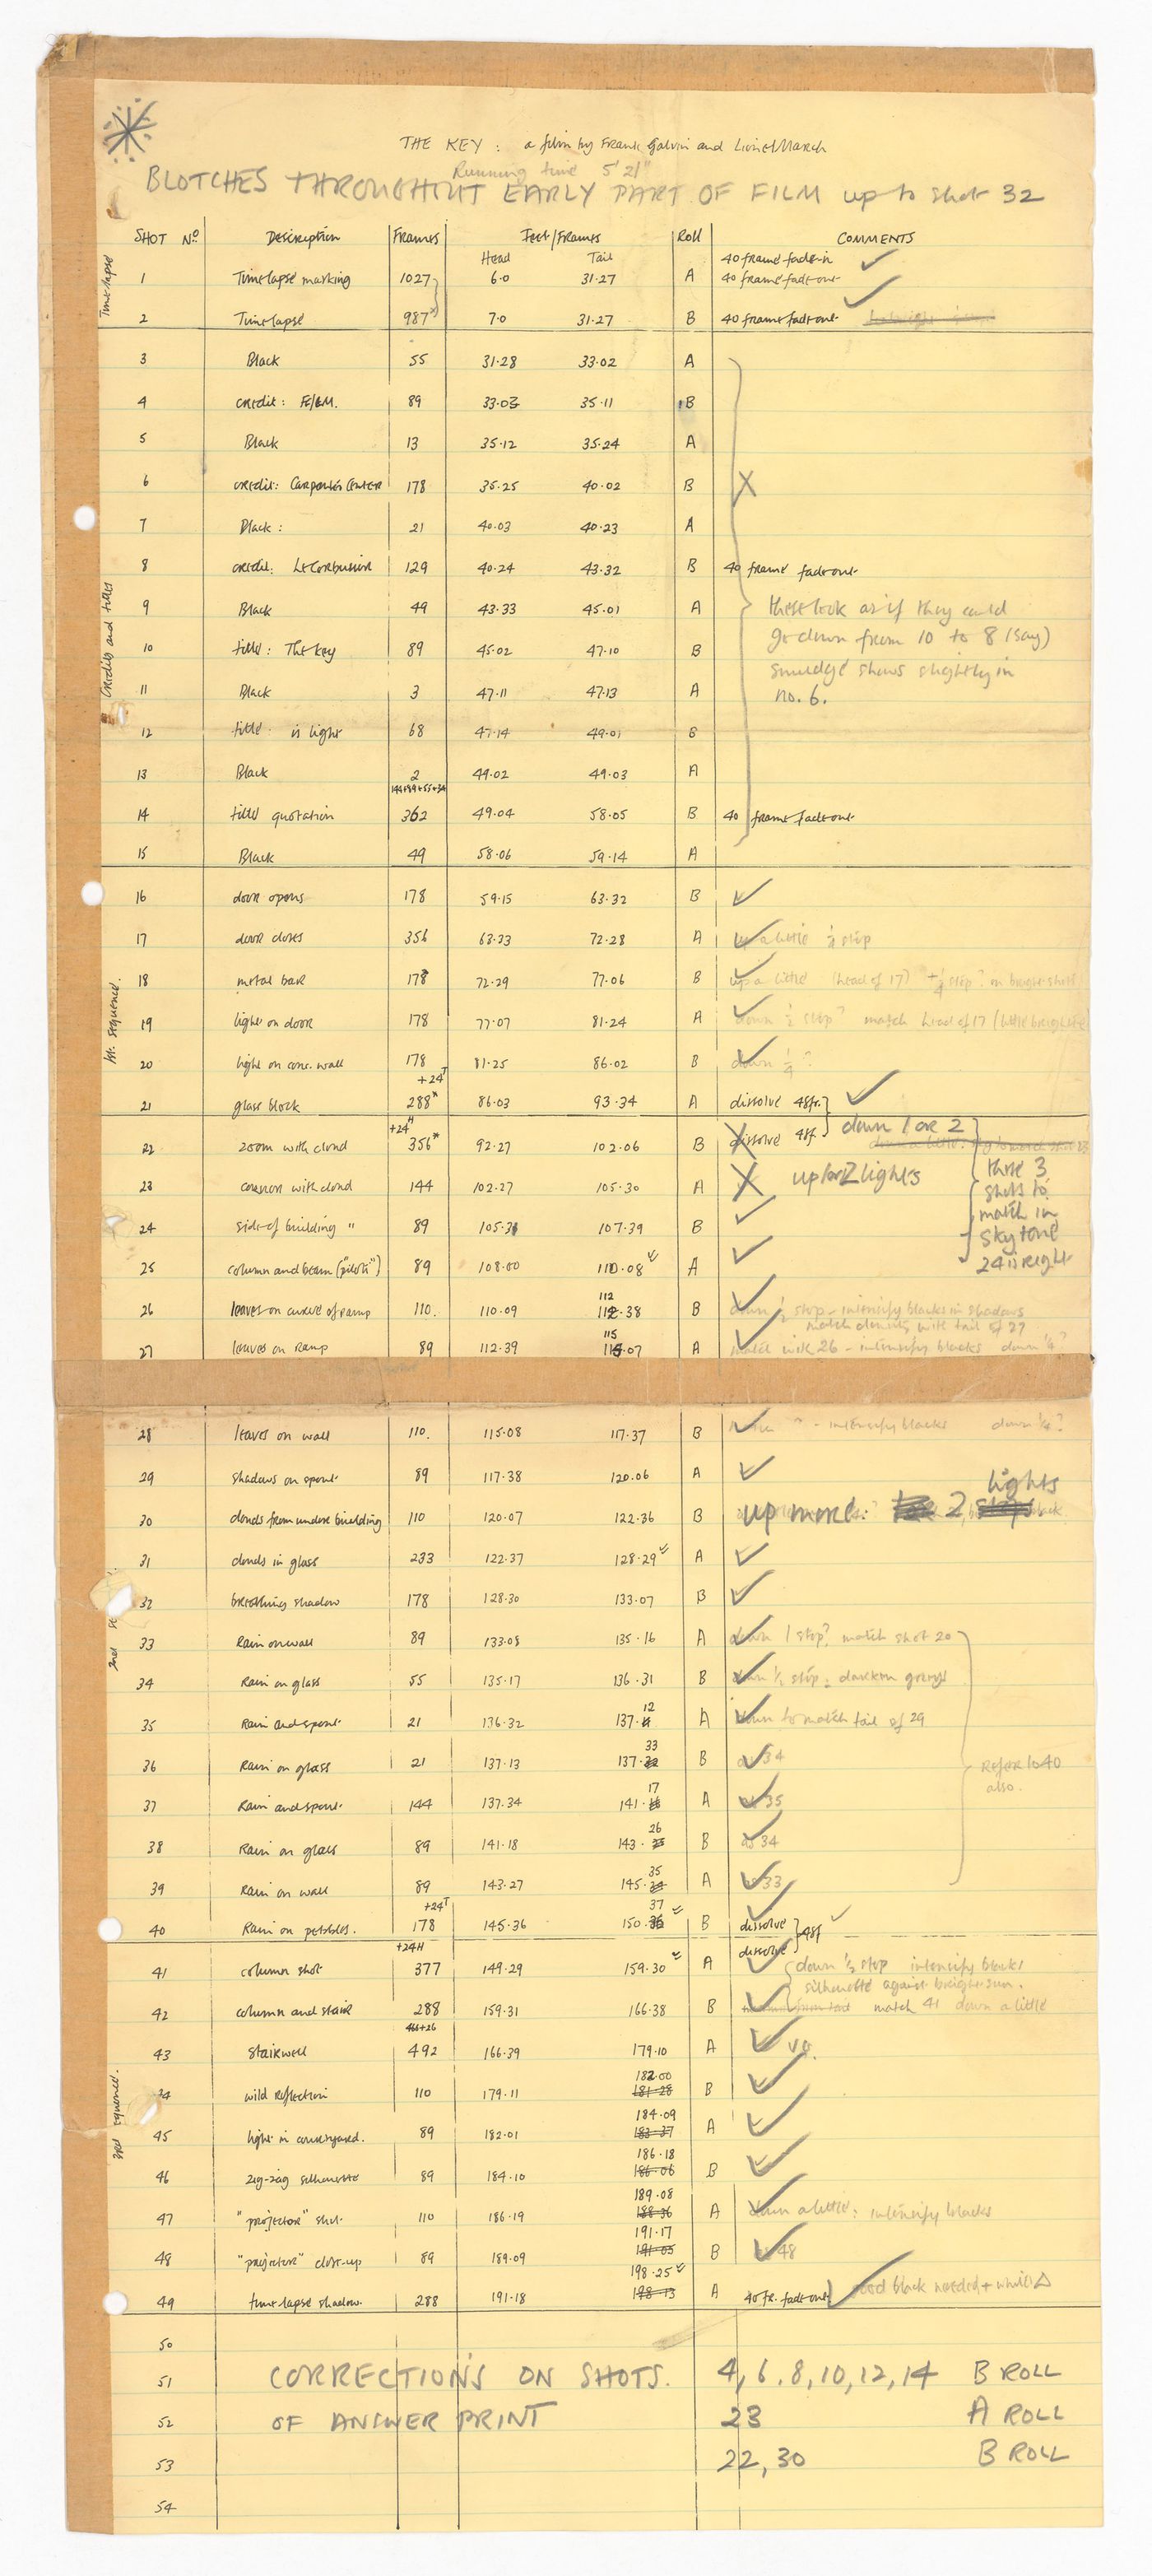 THE KEY : a film by Frank Galvin and Lionel March
Running time 5' 21"
BLOTCHES THROUGHOUT EARLY PART OF FILM up to shot 32
SHOT No Description Frames Feet/Frames Roll COMMENTS
Head Tail 40 frame fade-in
Time lapse
1 Time lapse marking 1027 6.0 31.27 A 40 frame fade-out
2 Time lapse 987 7.0 31.27 B 40 frame fade-out
3 Black 55 31.28 33.02 A
4 credit: FG/LM. 89 33.03 35.11 B
5 Black 13 35.12 35.24 A
6 credit: Carpenter Center 178 35.25 40.02 B X
7 Black : 21 40.03 40.23 A
8 credit: Le Corbusier 129 40.24 43.32 B 40 frame fade-out
Credits and titles
9 Black 49 43.33 45.01 A these look as if they could
10 title: The Key 89 45.02 47.10 B go down from 10 to 8 (say)
smudge shows slightly in
11 Black 3 47.11 47.13 A no. 6.
12 title: is light 68 47.14 49.01 B
13 Black 2 49.02 49.03 A
144+89+55+34
14 title quotation 362 49.04 58.05 B 40 frame fade-out
15 Black 49 58.06 59.14 A
16 door opens 178 59.15 63.32 B
17 door closes 356 63.33 72.28 A up a little 1/4 stop
18 metal bar 178 72.29 77.06 B up a little (head of 17) + 1/4 stop? in bright shot
1st. sequence.
19 light on door 178 77.07 81.24 A down 1/2 stop? match head of 17 (little brighter
20 light on conc. wall 178 81.25 86.02 B down 1/4 ?
+24T
21 glass block 288* 86.03 93.34 A dissolve 48fr.
+24H
22 zoom with cloud 356* 92.27 102.06 B dissolve 48f down 1 or 2
23 corner with cloud 144 102.27 105.30 A up 1 or 2 lights these 3
shots to
24 side of building " 89 105.31 107.39 B match in
sky tone
25 column and beam ("piloti") 89 108.00 110.08 A 24 is right
112
26 leaves on curve of ramp 110. 110.09 112.38 B down 1/2 stop - intensify blacks in shadows
match density with tail of 27
115
27 leaves on ramp 89 112.39 115.07 A match with 26 - intensify blacks down 1/4?
28 leaves on wall 110. 115.08 117.37 B " - intensify blacks down 1/4?
29 shadows on spout 89 117.38 120.06 A
lights
30 clouds from under building 110 120.07 122.36 B up more: 2
31 clouds in glass 233 122.37 128.29 A
32 breathing shadow 178 128.30 133.07 B
2nd
33 Rain on wall 89 133.08 135.16 A down 1 stop? match shot 20
34 Rain on glass 55 135.17 136.31 B down 1/2 stop: darken greys
12
35 Rain and spout 21 136.32 137. A down to match tail of 29
33
36 Rain on glass 21 137.13 137. B as 34 Refer to 40
also.
17
37 Rain and spout 144 137.34 141. A as 35
26
38 Rain on glass 89 141.18 143. B as 34
35
39 Rain on wall 89 143.27 145. A as 33
+24T 37
40 Rain on pebbles. 178 145.36 150. B dissolve 48f
+24H dissolve
41 column shot 377 149.29 159.30 A down 1/2 stop intensify blacks
silhouette against bright sun.
42 column and stair 288 159.31 166.38 B match 41 down a little
466+26
43 Stairwell 492 166.39 179.10 A
182.00
44 wild reflection 110 179.11 181-28 B
3rd sequence.
184.09
45 light in courtyard. 89 182.01 183-37 A
186.18
46 zig-zag silhouette 89 184.10 186-06 B
189.08
47 "projector" shot 110 186.19 188-36 A down a little: intensify blacks
191.17
48 "projector" close-up 89 189.09 191-05 B as 48
198.25
49 time lapse shadow 288 191.18 198-13 A 40 fr. fade-out good black needed + white △
50
51 CORRECTIONS ON SHOTS. 4, 6, 8, 10, 12, 14 B ROLL
52 OF ANSWER PRINT 23 A ROLL
53 22, 30 B ROLL
54